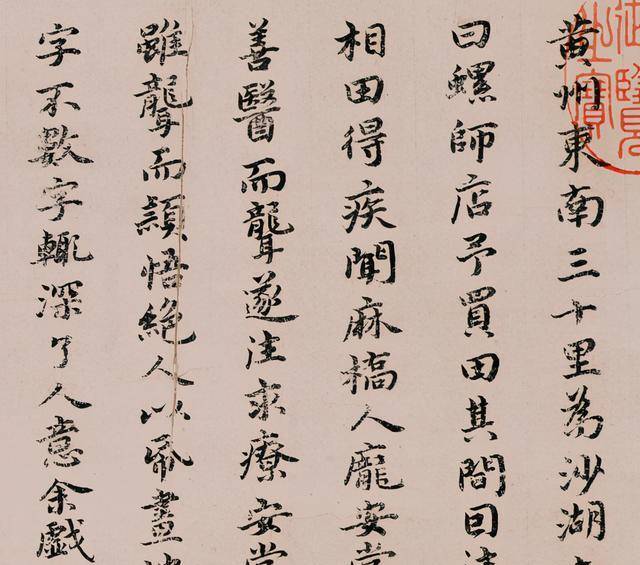 黄州東南三十里為沙湖
曰螺師店予買田其間囙
相田得疾聞麻橋人龐安常
善醫而聾遂往求療安常
雖聾而穎悟絕人以帋畫
字不數字輒深了人意余戲
御覽
之寶